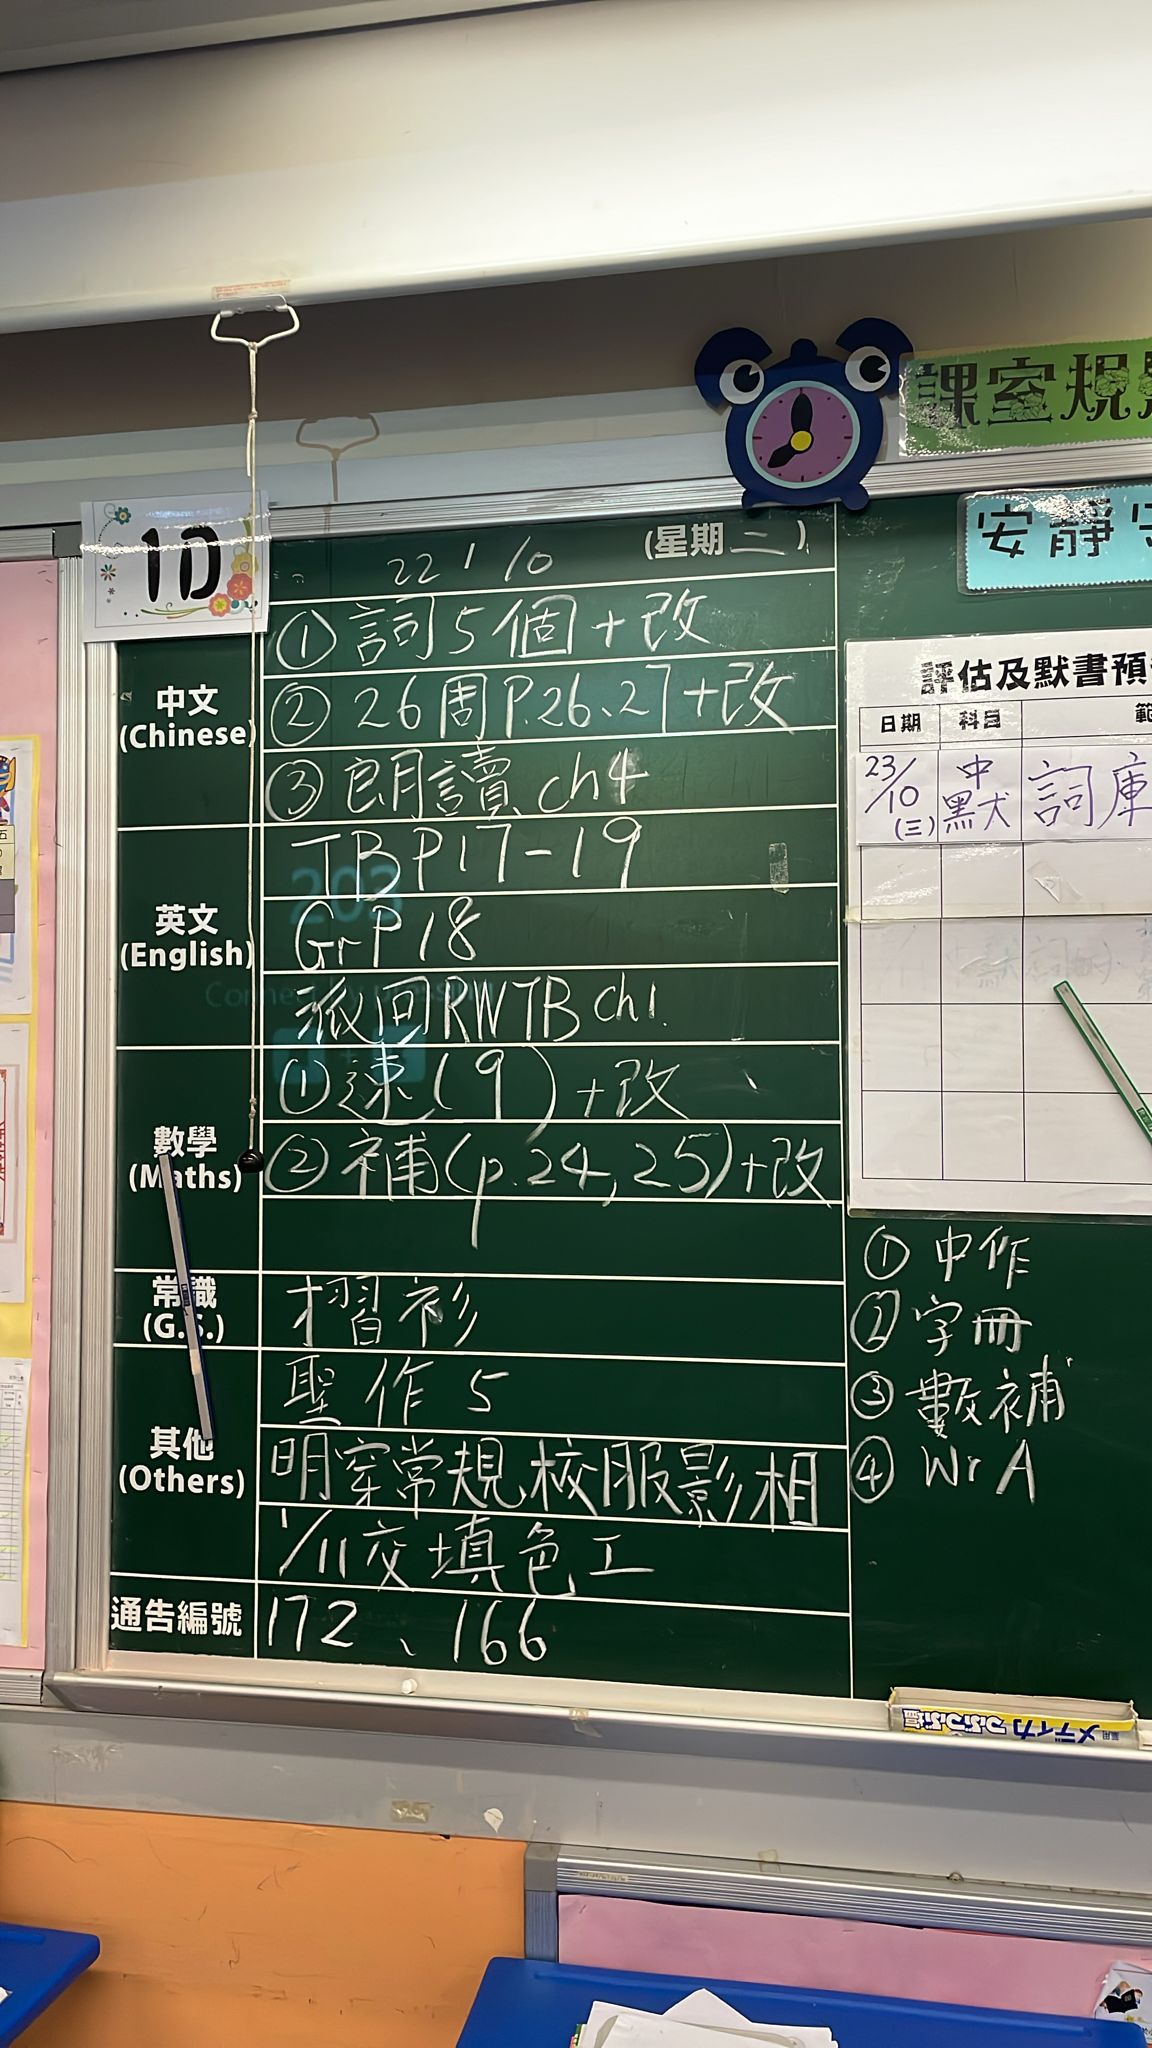 課室規
安靜
1D
22 / 10 (星期二)
中文
(Chinese)
① 詞5個+改
② 26周P.26、27+改
③ 朗讀 ch4
英文
(English)
TB P17-19
Gr P18
派回RWTB ch1
203
數學
(Maths)
① 速(9)+改
② 補(p.24,25)+改
常識
(G.S.)
摺衫
其他
(Others)
聖作5
明穿常規校服影相
1/11交填色工
通告編號
172、166
評估及默書預
日期 科目 範
23/10(三) 中默 詞庫
① 中作
② 字冊
③ 數補
④ Wr A
メディカ つぶつぶ塩